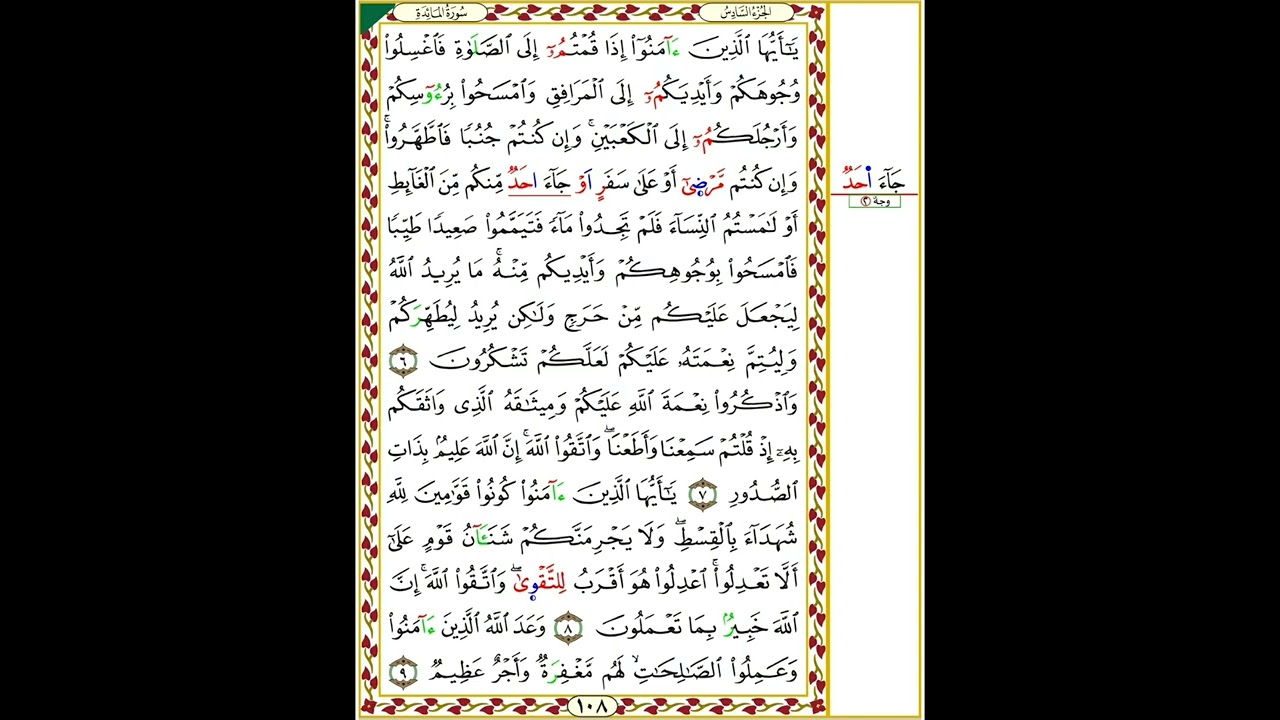 سُورَةُ المَائِدَةِ
الجُزْءُ السَّادِسُ
يَٰٓأَيُّهَا ٱلَّذِينَ ءَآمَنُوٓا۟ إِذَا قُمْتُمُۥٓ إِلَى ٱلصَّلَوٰةِ فَٱغْسِلُوا۟
وُجُوهَكُمْ وَأَيْدِيَكُمُۥٓ إِلَى ٱلْمَرَافِقِ وَٱمْسَحُوا۟ بِرُءُوٓسِكُمْ
وَأَرْجُلَكُمُۥٓ إِلَى ٱلْكَعْبَيْنِ ۚ وَإِن كُنتُمْ جُنُبًا فَٱطَّهَّرُوا۟ ۚ
وَإِن كُنتُم مَّرْضَىٰٓ أَوْ عَلَىٰ سَفَرٍ اَوْ جَآءَ احَدٌ مِّنكُم مِّنَ ٱلْغَآئِطِ
جَآءَ اَحَدٌ
وجه ٢
أَوْ لَٰمَسْتُمُ ٱلنِّسَآءَ فَلَمْ تَجِدُوا۟ مَآءً فَتَيَمَّمُوا۟ صَعِيدًا طَيِّبًا
فَٱمْسَحُوا۟ بِوُجُوهِكُمْ وَأَيْدِيكُم مِّنْهُ ۚ مَا يُرِيدُ ٱللَّهُ
لِيَجْعَلَ عَلَيْكُم مِّنْ حَرَجٍ وَلَٰكِن يُرِيدُ لِيُطَهِّرَكُمْ
وَلِيُتِمَّ نِعْمَتَهُۥ عَلَيْكُمْ لَعَلَّكُمْ تَشْكُرُونَ ٦
وَٱذْكُرُوا۟ نِعْمَةَ ٱللَّهِ عَلَيْكُمْ وَمِيثَٰقَهُ ٱلَّذِى وَاثَقَكُم
بِهِۦٓ إِذْ قُلْتُمْ سَمِعْنَا وَأَطَعْنَا ۖ وَٱتَّقُوا۟ ٱللَّهَ ۚ إِنَّ ٱللَّهَ عَلِيمٌۢ بِذَاتِ
ٱلصُّدُورِ ٧ يَٰٓأَيُّهَا ٱلَّذِينَ ءَآمَنُوا۟ كُونُوا۟ قَوَّٰمِينَ لِلَّهِ
شُهَدَآءَ بِٱلْقِسْطِ ۖ وَلَا يَجْرِمَنَّكُمْ شَنَـَٔآنُ قَوْمٍ عَلَىٰٓ
أَلَّا تَعْدِلُوا۟ ۚ ٱعْدِلُوا۟ هُوَ أَقْرَبُ لِلتَّقْوَىٰ ۖ وَٱتَّقُوا۟ ٱللَّهَ ۚ إِنَّ
ٱللَّهَ خَبِيرٌۢ بِمَا تَعْمَلُونَ ٨ وَعَدَ ٱللَّهُ ٱلَّذِينَ ءَآمَنُوا۟
وَعَمِلُوا۟ ٱلصَّٰلِحَٰتِ ۙ لَهُم مَّغْفِرَةٌ وَأَجْرٌ عَظِيمٌ ٩
١٠٨